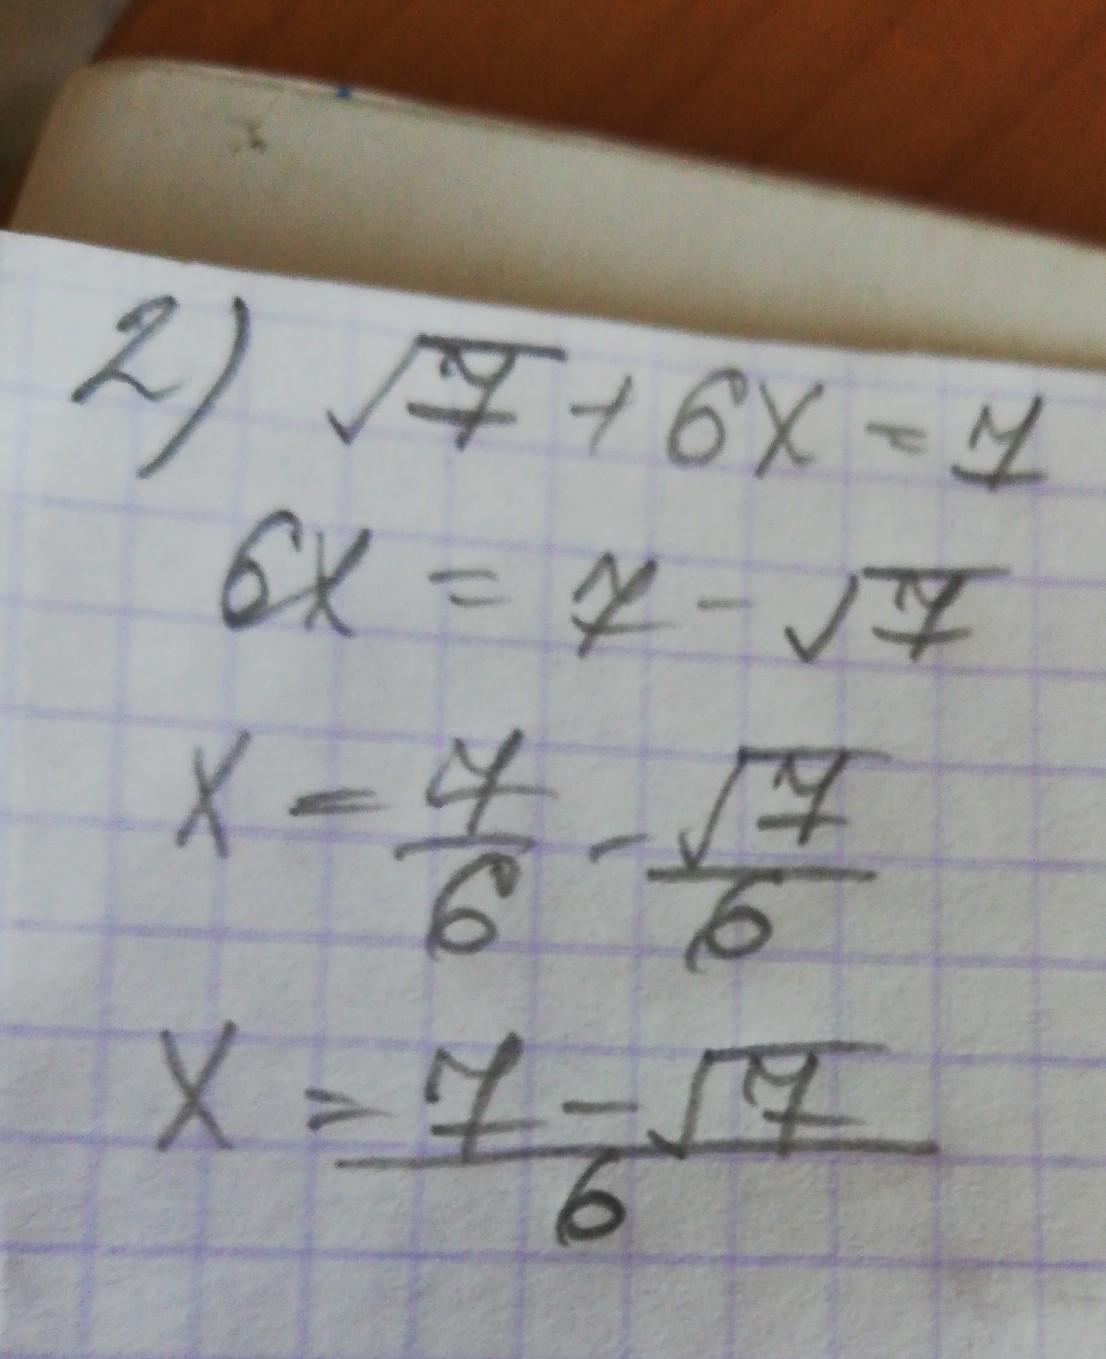 2) √7 + 6x = 7
6x = 7 - √7
x = 7/6 - √7/6
x = (7 - √7)/6